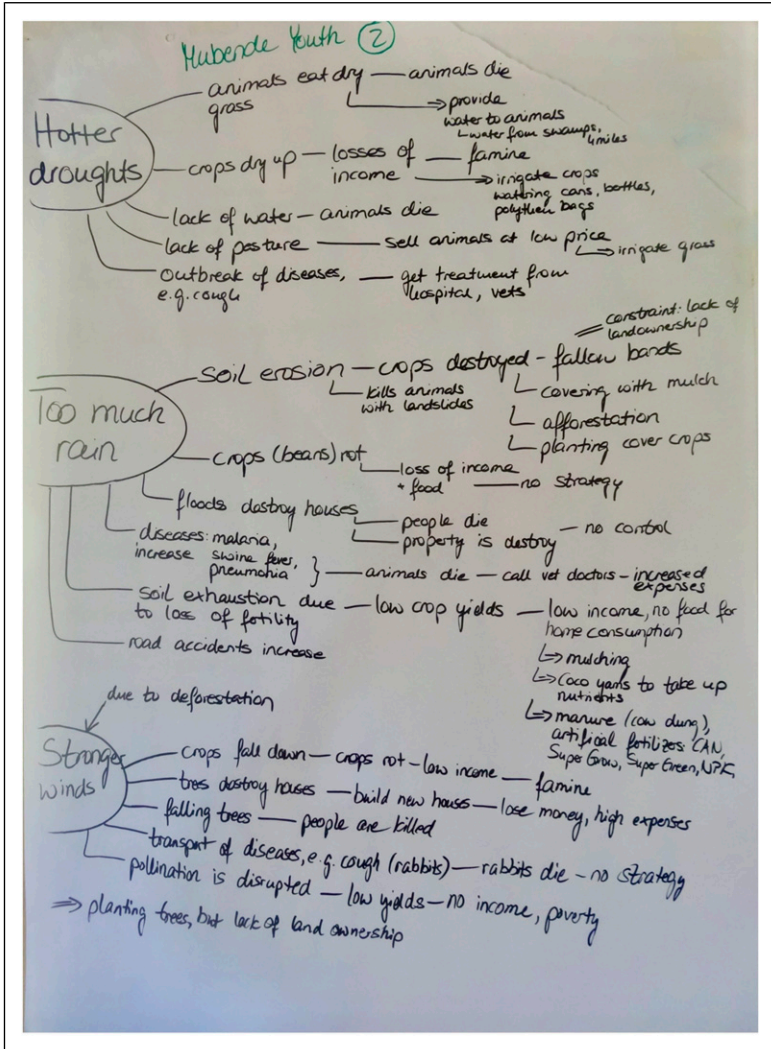 Mubende Youth 2
Hotter
droughts
animals eat dry — animals die
grass
⇒ provide
water to animals
water from swamps,
4miles
crops dry up — losses of — famine
income ⇒ irrigate crops
watering cans, bottles,
polythen bags
lack of water — animals die
lack of pasture — sell animals at low price
⇒ irrigate grass
Outbreak of diseases, — get treatment from
e.g. cough hospital, vets
constraint: lack of
landownership
Too much
rain
soil erosion — crops destroyed — fallow bands
kills animals
with landslides
covering with mulch
afforestation
planting cover crops
crops (beans) rot
loss of income
+ food — no strategy
floods destroy houses
people die
property is destroy — no control
diseases: malaria,
increase swine fever,
pneumonia } — animals die — call vet doctors — increased
expenses
soil exhaustion due — low crop yields — low income, no food for
to loss of fertility home consumption
road accidents increase
⇒ mulching
⇒ Coco yams to take up
nutrients
⇒ manure (cow dung),
artificial fertilizes: CAN,
Super Grow, Super Green, NPK,
due to deforestation
Stronger
winds
crops fall down — crops rot — low income — famine
trees destroy houses — build new houses — lose money, high expenses
falling trees — people are killed
transport of diseases, e.g. cough (rabbits) — rabbits die — no strategy
pollination is disrupted — low yields — no income, poverty
⇒ planting trees, but lack of land ownership